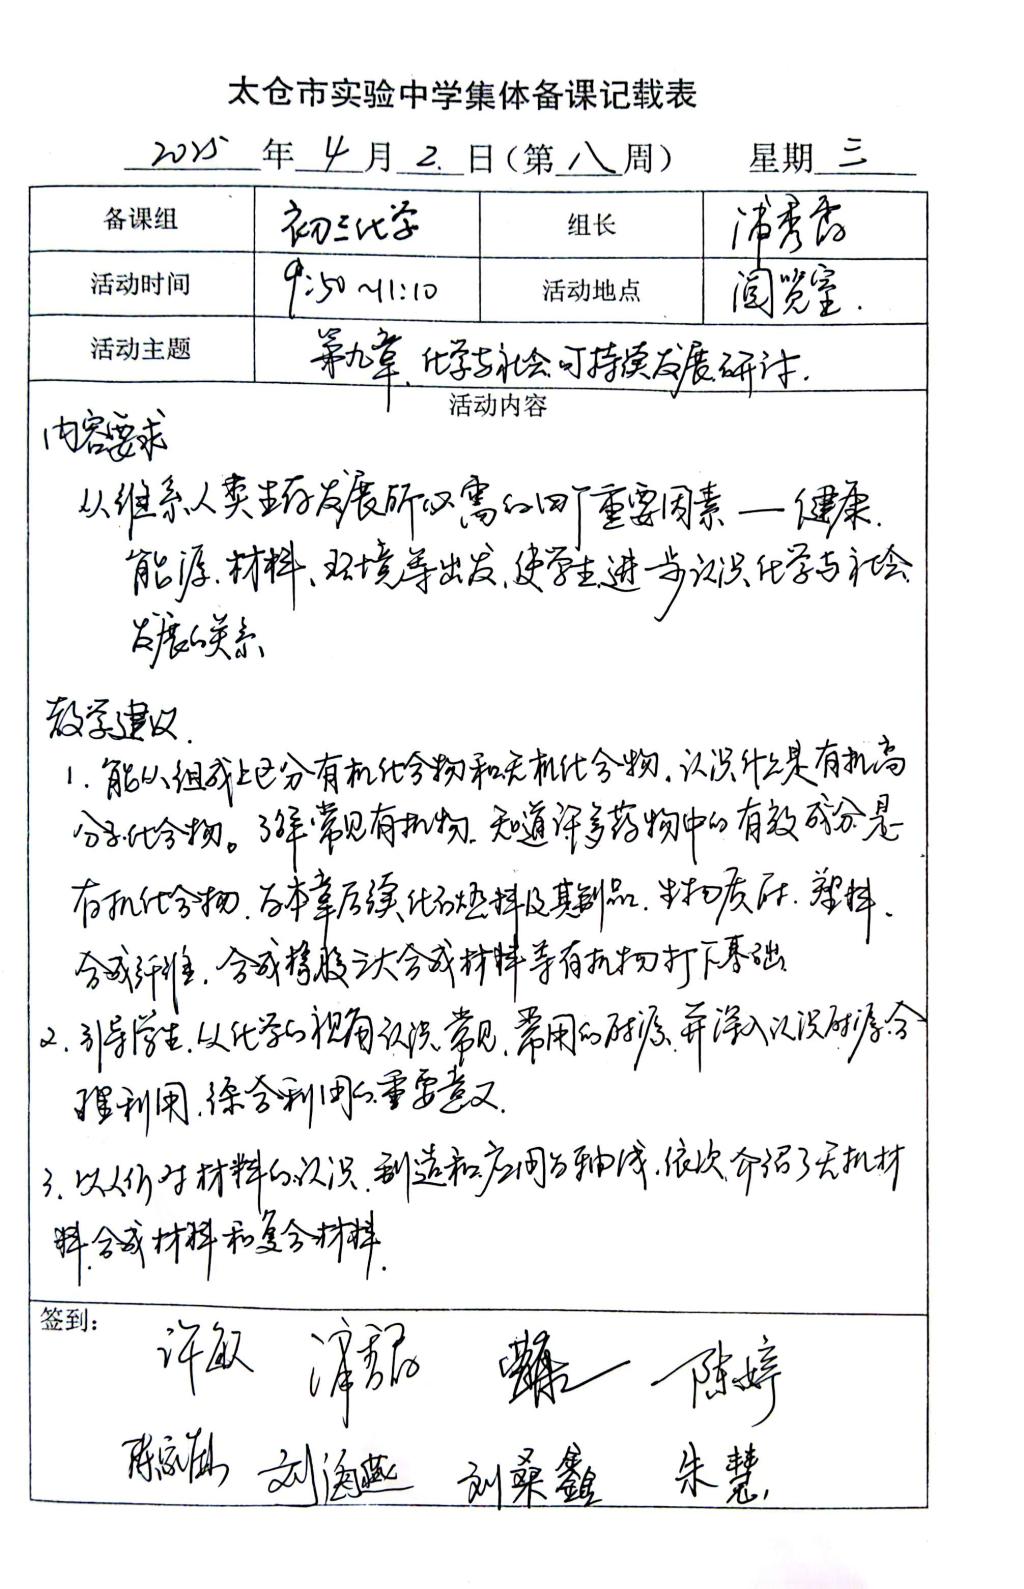 太仓市实验中学集体备课记载表
2025年4月2日（第八周） 星期三
备课组 初三化学 组长 浦秀
活动时间 9:50~11:10 活动地点 阅览室.
活动主题 第九章 化学与社会可持续发展研讨.
活动内容
内容要求
从维系人类生存发展所必需的四个重要因素—健康.
能源.材料、环境等出发,使学生进一步认识化学与社会
发展的关系
教学建议.
1.能从组成上区分有机化合物和无机化合物,认识什么是有机高
分子化合物。了解常见有机物.知道许多药物中的有效成分是
有机化合物.为本章后续化石燃料及其制品.生物质能.塑料.
合成纤维.合成橡胶三大合成材料等有机物打下基础
2.引导学生.从化学的视角认识常见.常用的能源.并深入认识能源合
理利用.综合利用的重要意义.
3.以人们对材料的认识.制造和应用为轴线.依次介绍了无机材
料.合成材料和复合材料.
签到:
许敏 浦秀 陈婷
陈家 刘海燕 刘桑鑫 朱慧